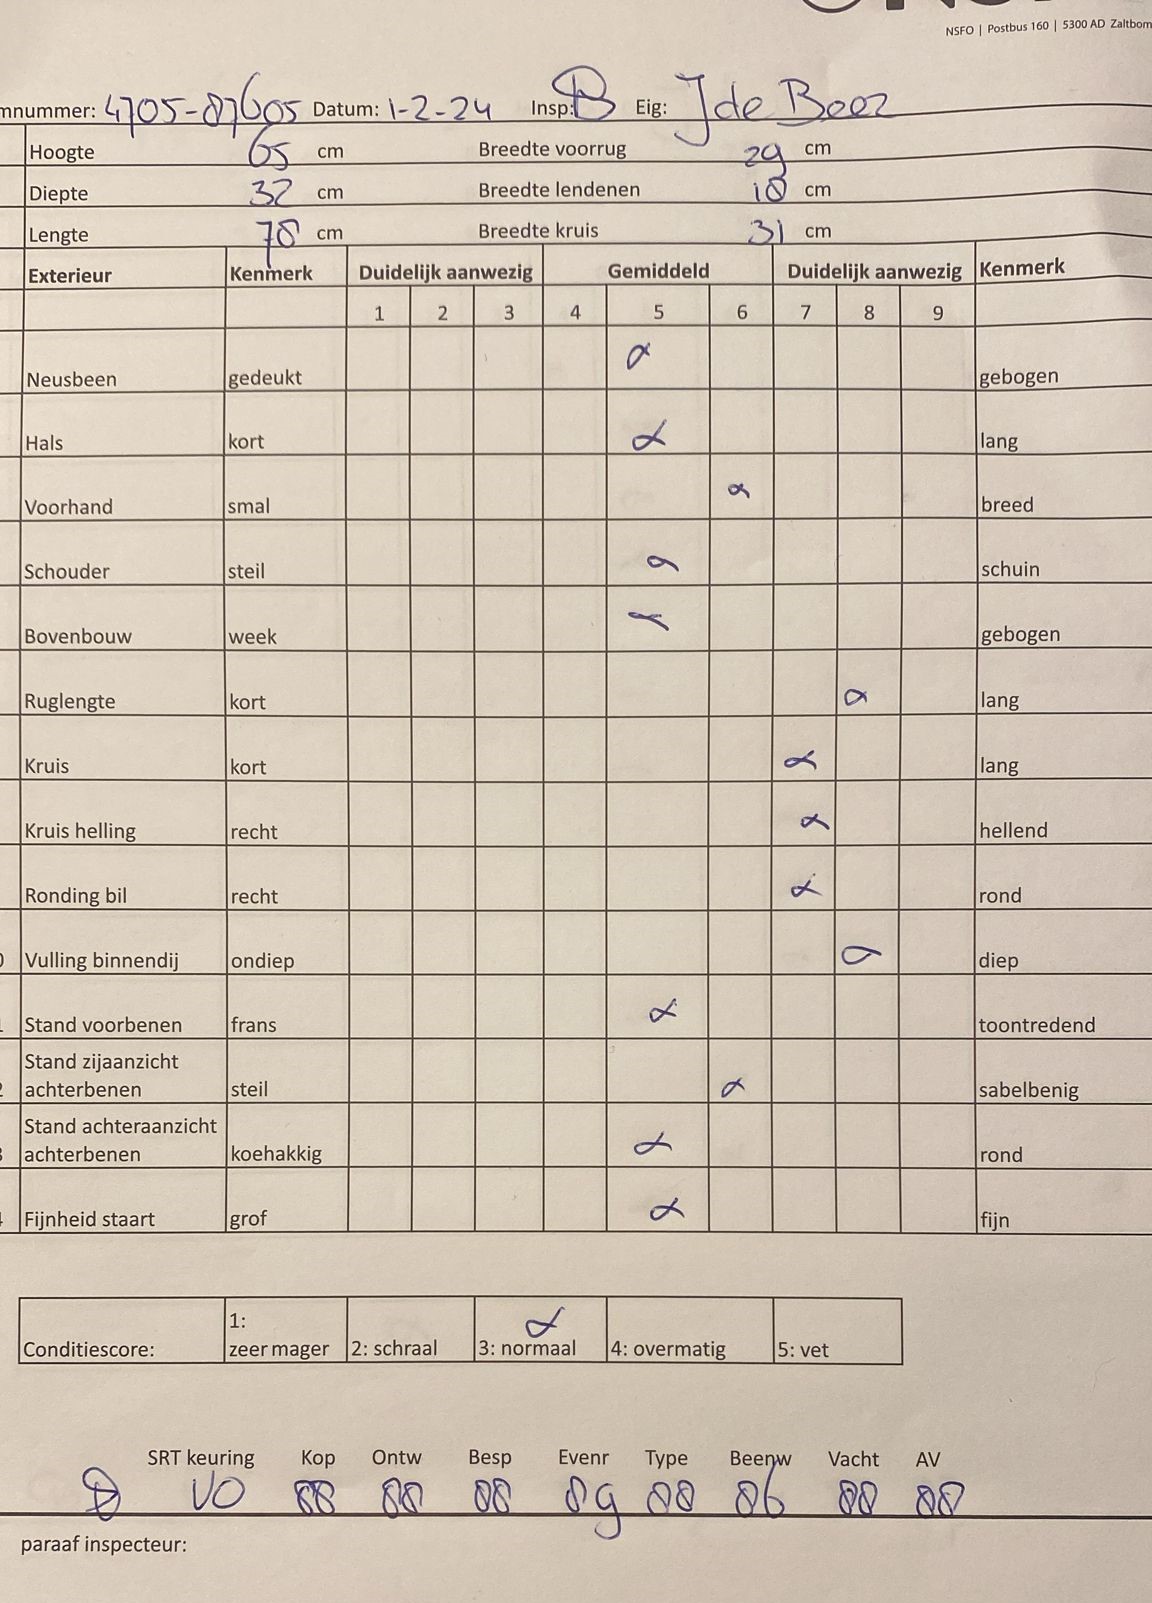 NSFO | Postbus 160 | 5300 AD Zaltbom
mnummer: 4705-87605 Datum: 1-2-24 Insp: B Eig: J de Beer
Hoogte 65 cm Breedte voorrug 29 cm
Diepte 32 cm Breedte lendenen 18 cm
Lengte 78 cm Breedte kruis 31 cm
Exterieur Kenmerk Duidelijk aanwezig Gemiddeld Duidelijk aanwezig Kenmerk
1 2 3 4 5 6 7 8 9
Neusbeen gedeukt gebogen
Hals kort lang
Voorhand smal breed
Schouder steil schuin
Bovenbouw week gebogen
Ruglengte kort lang
Kruis kort lang
Kruis helling recht hellend
Ronding bil recht rond
0 Vulling binnendij ondiep diep
1 Stand voorbenen frans toontredend
Stand zijaanzicht
2 achterbenen steil sabelbenig
Stand achteraanzicht
3 achterbenen koehakkig rond
4 Fijnheid staart grof fijn
1:
Conditiescore: zeer mager 2: schraal 3: normaal 4: overmatig 5: vet
SRT keuring Kop Ontw Besp Evenr Type Beenw Vacht AV
VO 88 88 88 89 88 86 88 88
paraaf inspecteur: